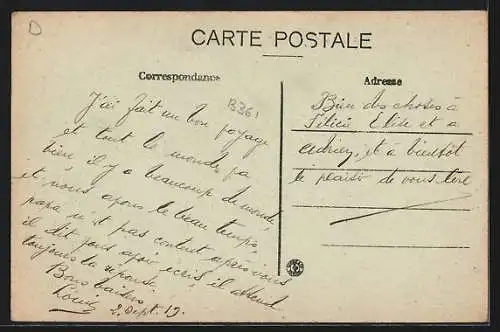 D
CARTE POSTALE
Correspondance
Adresse
B361
J'ai fait un bon voyage
et tout le monde va
bien, il y a beaucoup de monde,
et nous avons le beau temps,
papa n'est pas content après vous
il dit pas avoir écris, il attend
toujours la réponse
Bons baisers
Louis
2 Sept. 19.
Bien des choses à
Félicie Elise et a
et à bientôt
le plaisir de vous lire